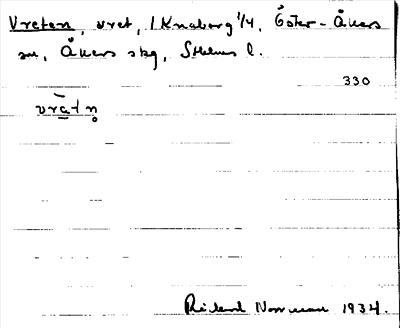 Vreten, vret, 1 Knaborg 1/4, Öster-Åkers
sn, Åkers skg, Sthlms l.
330
vrātn̥
Rickard Norrman 1934.